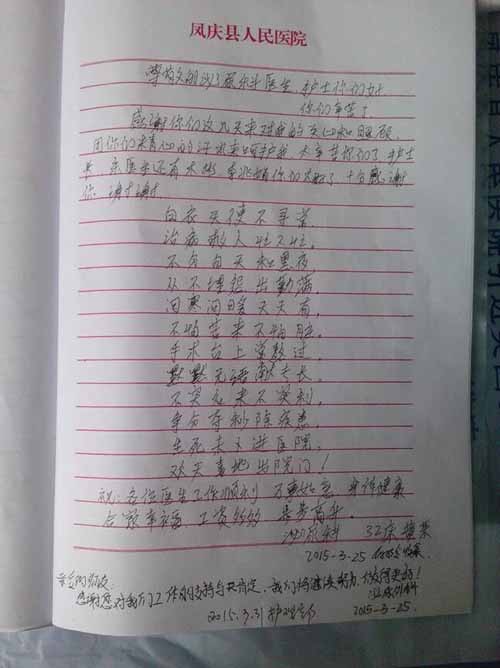 凤庆县人民医院
尊敬的泌尿科医生 护士你们好
你们辛苦了
感谢你们这几天来对我的关心和照顾
用你们 心的 来呵护我 太辛苦你们了 护士
医生还有 你们太好了 十分感谢
你 谢谢
白衣天使不寻常
治病救人忙不忙
不分白天和黑夜
从不埋怨出勤满
问寒问暖天天有
不怕苦来不怕脏
手术台上 过
默默无语献专长
不哭 来不哭
争分夺秒除疾患
生死未卜进医院
欢天喜地出院门!
祝:各位医生工作顺利 万事如意 身体健康
合家幸福 工资 步步高升
泌尿科 32床
2015-3-25
亲爱的
感谢您对我们工作的支持与肯定,我们将继续努力,做得更好!
泌尿外科
2015.3.31 护理部 2015-3-25